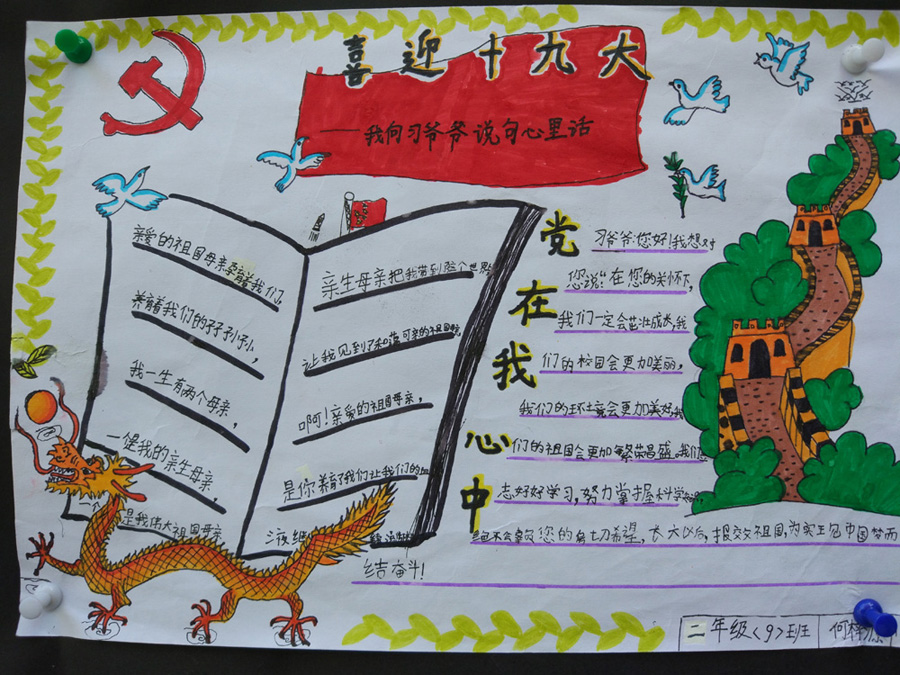 喜迎十九大
——我向习爷爷说句心里话
亲爱的祖国母亲孕育着我们,
养育着我们的子子孙孙,
我一生有两个母亲,
一是我的亲生母亲,
是我伟大祖国母亲
亲生母亲把我带到这个世界
让我见到了和蔼可亲的祖国母亲
啊!亲爱的祖国母亲,
是你养育了我们让我们的血
液继
党在我心中
习爷爷:您好!我想对
您说:“在您的关怀下,
我们一定会茁壮成长,我
们的校园会更加美丽,
我们的环境会更加美好,我
们的祖国会更加繁荣昌盛。我们
志好好学习,努力掌握科学知识
绝不会辜负您的殷切希望,长大以后,报效祖国,为实现中国梦而
结奋斗!
二年级〈9〉班 何梓